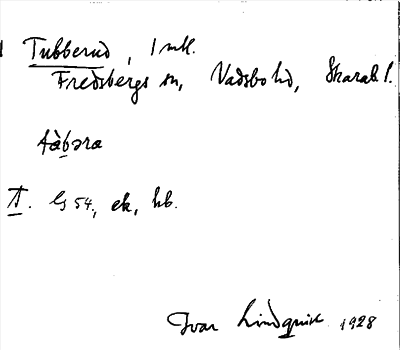 Tubberud, 1 mtl.
Fredsbergs sn, Vadsbo hd, Skarab. l.
tàb̲əra
A̲. G 54, ek, hb.
Ivar Lindquist 1928